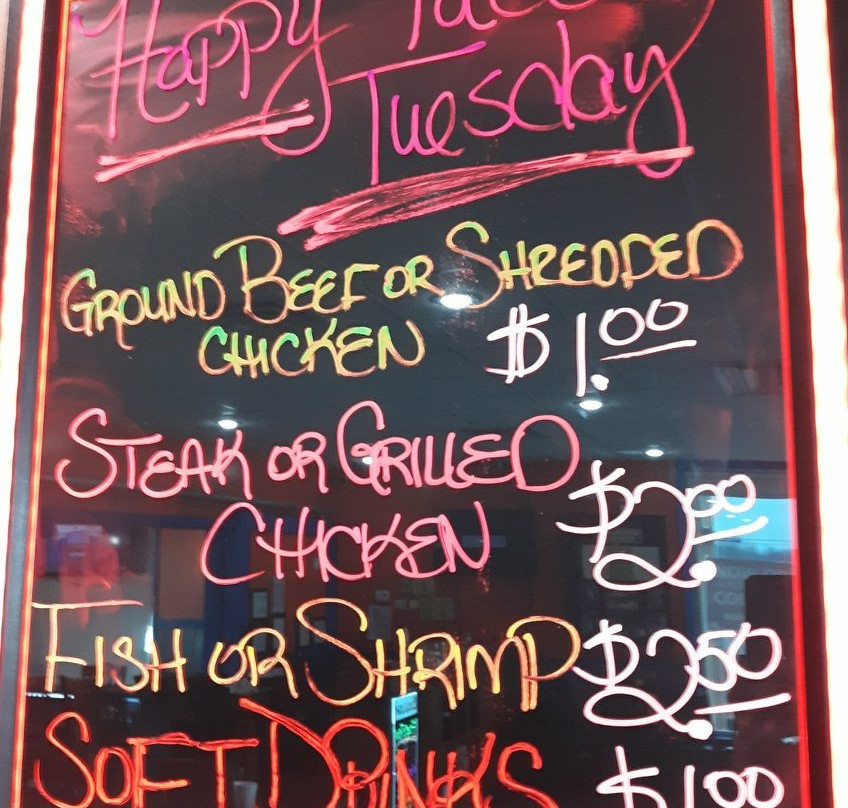 Happy Taco
Tuesday
GROUND BEEF OR SHREDDED
CHICKEN $1.00
STEAK OR GRILLED
CHICKEN $2.00
FISH OR SHRIMP $2.50
SOFT DRINKS $1.00